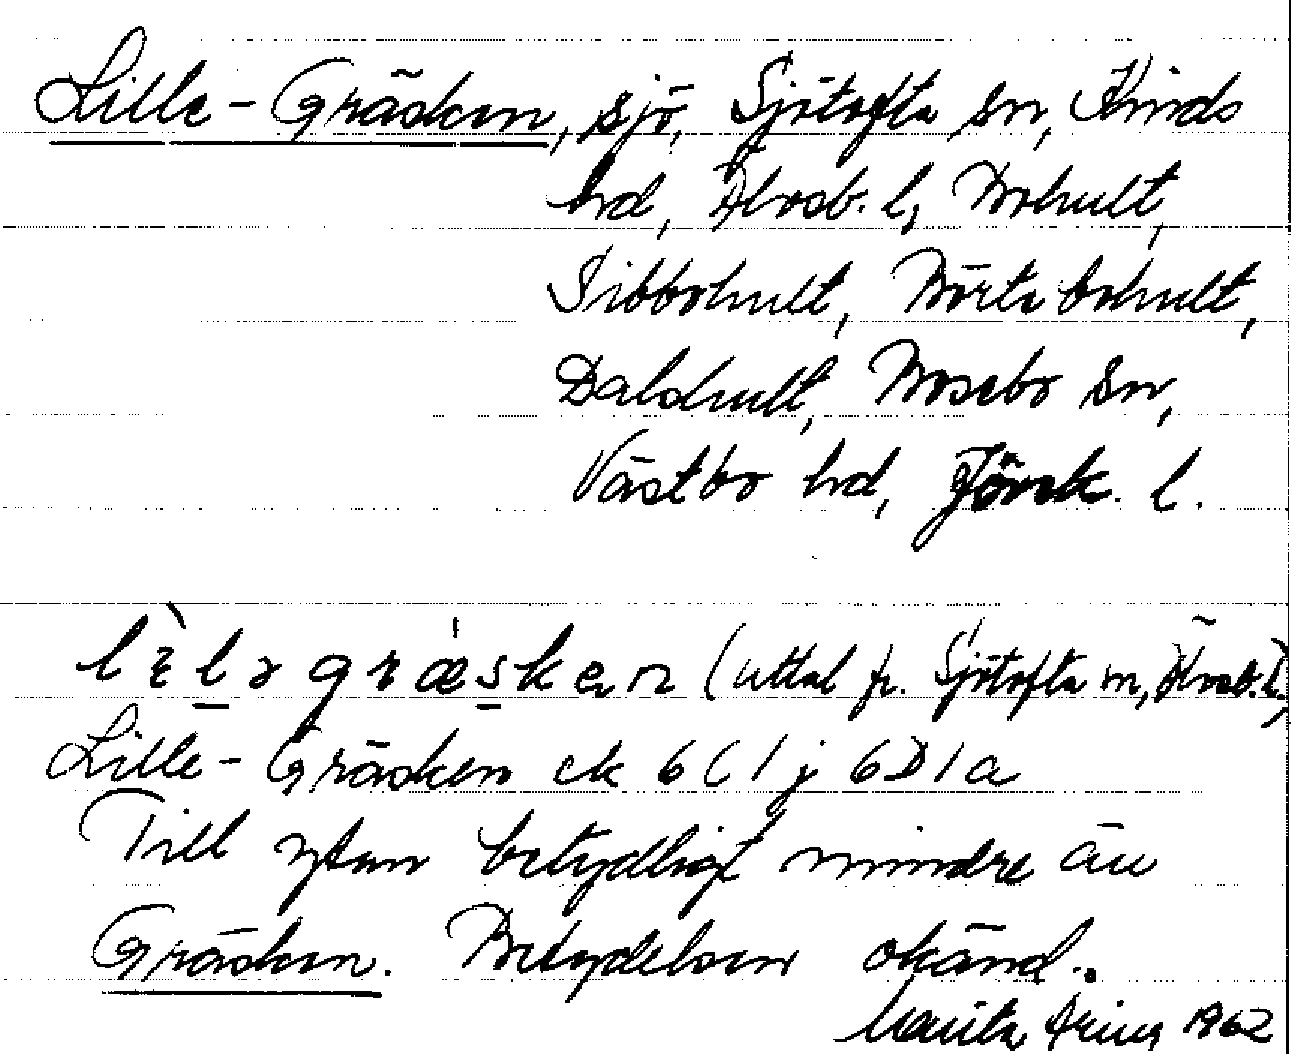 Lille-Gräsken, sjö, Sjötofta sn, Kinds
hd, Älvsb. l, Bohult,
Sibbohult, Börtebohult,
Daldhult, Bosebo sn,
Västbo hd, Jönk. l.
lìlə græsken (uttal fr. Sjötofta sn, Älvsb. l.),
Lille-Gräsken ek 6C1j 6D1a
Till ytan betydligt mindre än
Gräsken. Betydelsen okänd.
1962